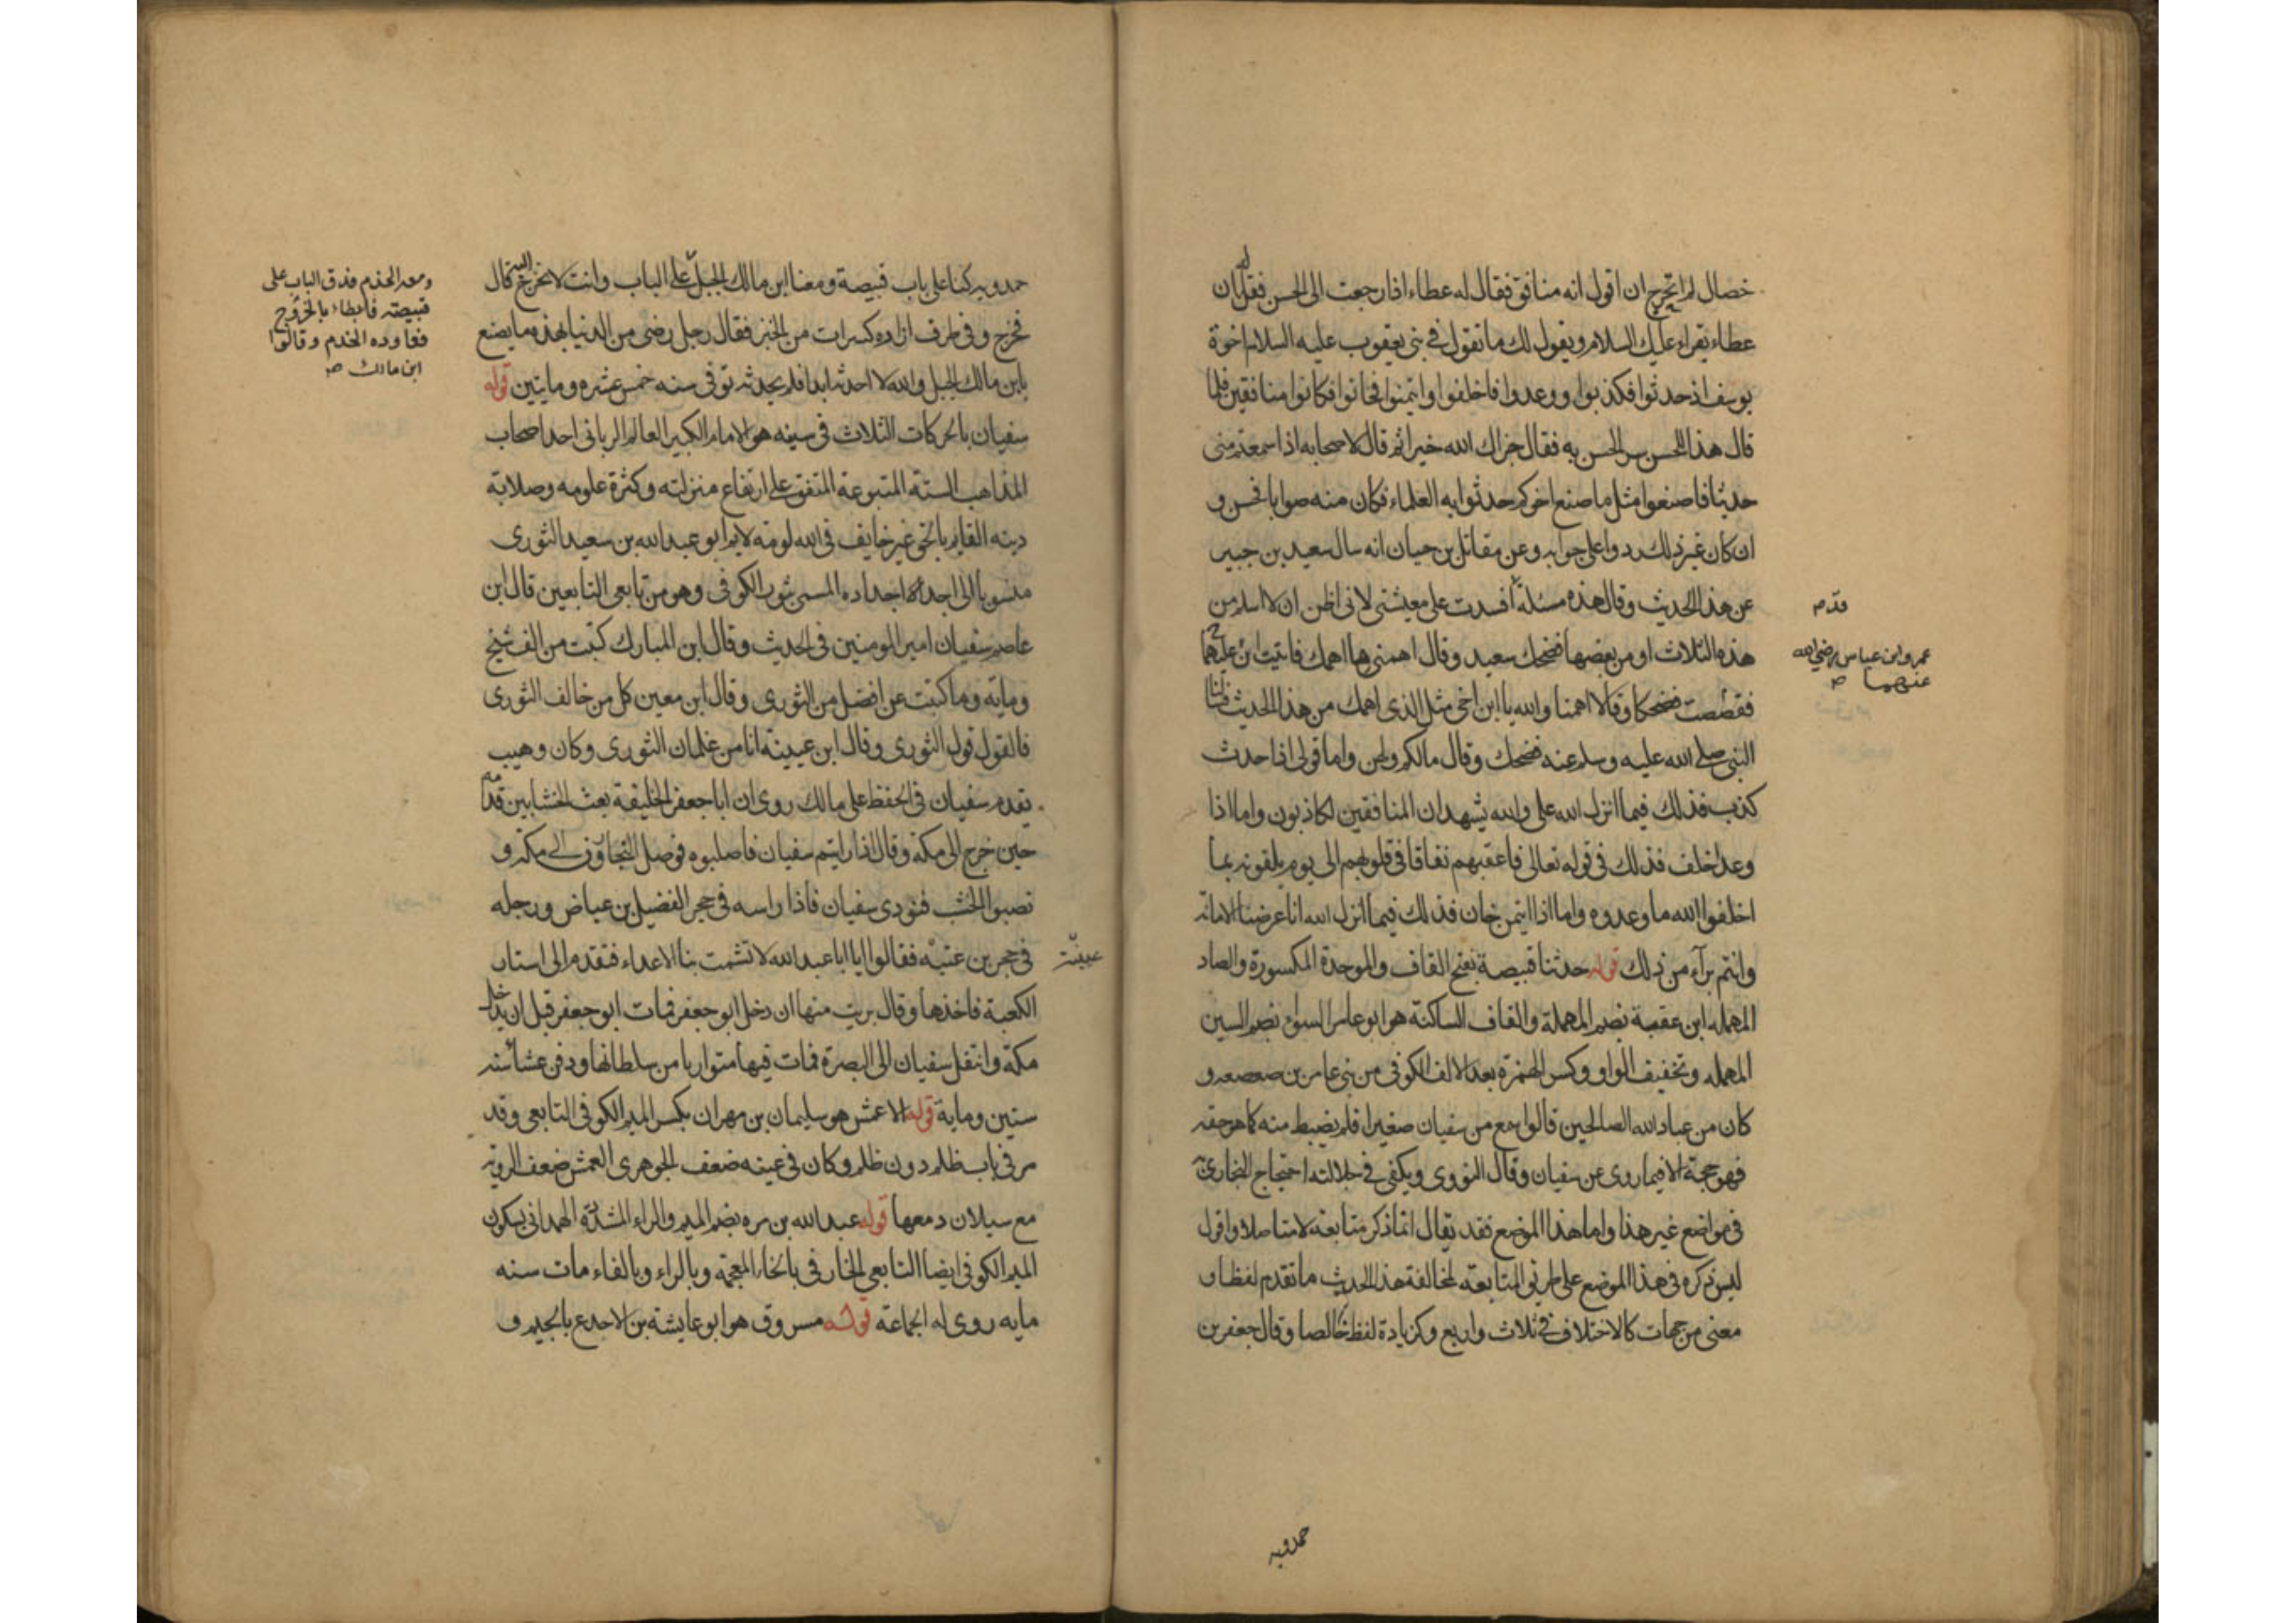 خصال لم اتحرج ان اقول انه منافق فقال له عطاء اذا رجعت الى الحسن فقل له ان
عطاء يقراء عليك السلام ويقول لك ما تقول في بني يعقوب عليه السلام اخوة
يوسف اذ حدثوا فكذبوا ووعدوا فاخلفوا وايتمنوا فخانوا فكانوا منافقين فلما
قال هذا للحسن سر الحسن به فقال جزاك الله خيرا ثم قال لاصحابه اذا سمعتم مني
حديثا فاصنعوا مثل ما صنع اخوكم حدثوا به العلماء فكان منه صوابا فحسن و
ان كان غير ذلك ردوا على جوابه وعن مقاتل بن حيان انه سال سعيد بن جبير
عن هذا الحديث وقال هذه مسئلة افسدت على معيشتي لاني اظن ان لا اسلم من
قدم
هذه الثلاث او من بعضها فضحك سعيد وقال اهمني ما اهمك فاتيت ابن عمر
عمر وابن عباس رضي الله
عنهما صح
فقصصت فضحكا وقالا اهمنا والله يا ابن اخي مثل الذي اهمك من هذا الحديث فسالنا
النبي صلى الله عليه وسلم عنه فضحك وقال مالكم ولهن واما قولي اذا حدث
كذب فذلك فيما انزل الله علي والله يشهد ان المنافقين لكاذبون واما اذا
وعد اخلف فذلك في قوله تعالى فاعقبهم نفاقا في قلوبهم الى يوم يلقونه بما
اخلفوا الله ما وعدوه واما اذا ايتمن خان فذلك فيما انزل الله انا عرضنا الامانة
وانتم برآء من ذلك قوله حدثنا قبيصة بفتح القاف والموحدة المكسورة والصاد
المهملة ابن عقبة بضم المهملة والقاف الساكنة هو ابو عامر السوائي بضم السين
المهملة وتخفيف الواو وكسر الهمزة بعد الالف الكوفي من بني عامر بن صعصعه و
كان من عباد الله الصالحين قالوا سمع من سفيان صغيرا فلم يضبط منه كما هو حقه
فهو حجة الا فيما روى عن سفيان وقال النووي ويكفي في جلالته احتجاج البخاري
في مواضع غير هذا واما هذا الموضع فقد يقال انما ذكر متابعة لا متاصلا واقول
ليس ذكره في هذا الموضع على طريق المتابعة لمخالفة هذا الحديث ما تقدم لفظا و
معنى من جهات كالاختلاف في ثلاث واربع وكزيادة لفظ خالصا وقال جعفر بن
حمدويه
حمدويه كنا على باب قبيصة ومعنا ابن مالك الجبل على الباب وانت لا تخرج اليه قال
ومعه الخدم فدق الباب على
قبيصة فابطاء بالخروج
فعاوده الخدم وقالوا
ابن مالك صح
فخرج وفي طرف ازاره كسرات من الخبز فقال رجل رضي من الدنيا بهذه ما يصنع
بابن مالك الجبل والله لا احدثه ابدا فلم يحدثه توفي سنه خمس عشره ومايتين قوله
سفيان بالحركات الثلاث في سينه هو الامام الكبير العالم الرباني احد اصحاب
المذاهب الستة المتبوعة المتفق على ارتفاع منزلته وكثرة علومه وصلابة
دينه القايم بالحق غير خايف في الله لومة لايم ابو عبد الله بن سعيد الثوري
منسوبا الى احد اجداده المسمى بثور الكوفي وهو من تابعي التابعين قال ابن
عاصم سفيان امير المومنين في الحديث وقال ابن المبارك كتبت من الف شيخ
وماية وما كتبت عن افضل من الثوري وقال ابن معين كل من خالف الثوري
فالقول قول الثوري وقال ابن عيينة انا من غلمان الثوري وكان وهيب
يقدم سفيان في الحفظ على مالك روى ان ابا جعفر الخليفة بعث الخشابين قدامه
حين خرج الى مكة وقال اذا رايتم سفيان فاصلبوه فوصل النجارون الى مكة و
نصبوا الخشب فنودي سفيان فاذا راسه في حجر الفضيل بن عياض ورجله
في حجر بن عتبه فقالوا يا ابا عبد الله لا تشمت بنا الاعداء فتقدم الى استار
عيينة
الكعبة فاخذها وقال بريت منها ان دخل ابو جعفر فمات ابو جعفر قبل ان يدخل
مكة وانتقل سفيان الى البصرة فمات فيها متواريا من سلطانها ودفن عشاء سنه
ستين وماية قوله الاعمش هو سليمان بن مهران بكسر الميم الكوفي التابعي وقد
مر في باب ظلم دون ظلم وكان في عينه ضعف الجوهري العمش ضعف الروية
مع سيلان دمعها قوله عبد الله بن مره بضم الميم والراء المشددة الهمداني بسكون
الميم الكوفي ايضا التابعي الخارفي بالخاء المعجمة وبالراء وبالفاء مات سنه
مايه روى له الجماعة قوله مسروق هو ابو عايشة بن الاجدع بالجيم و